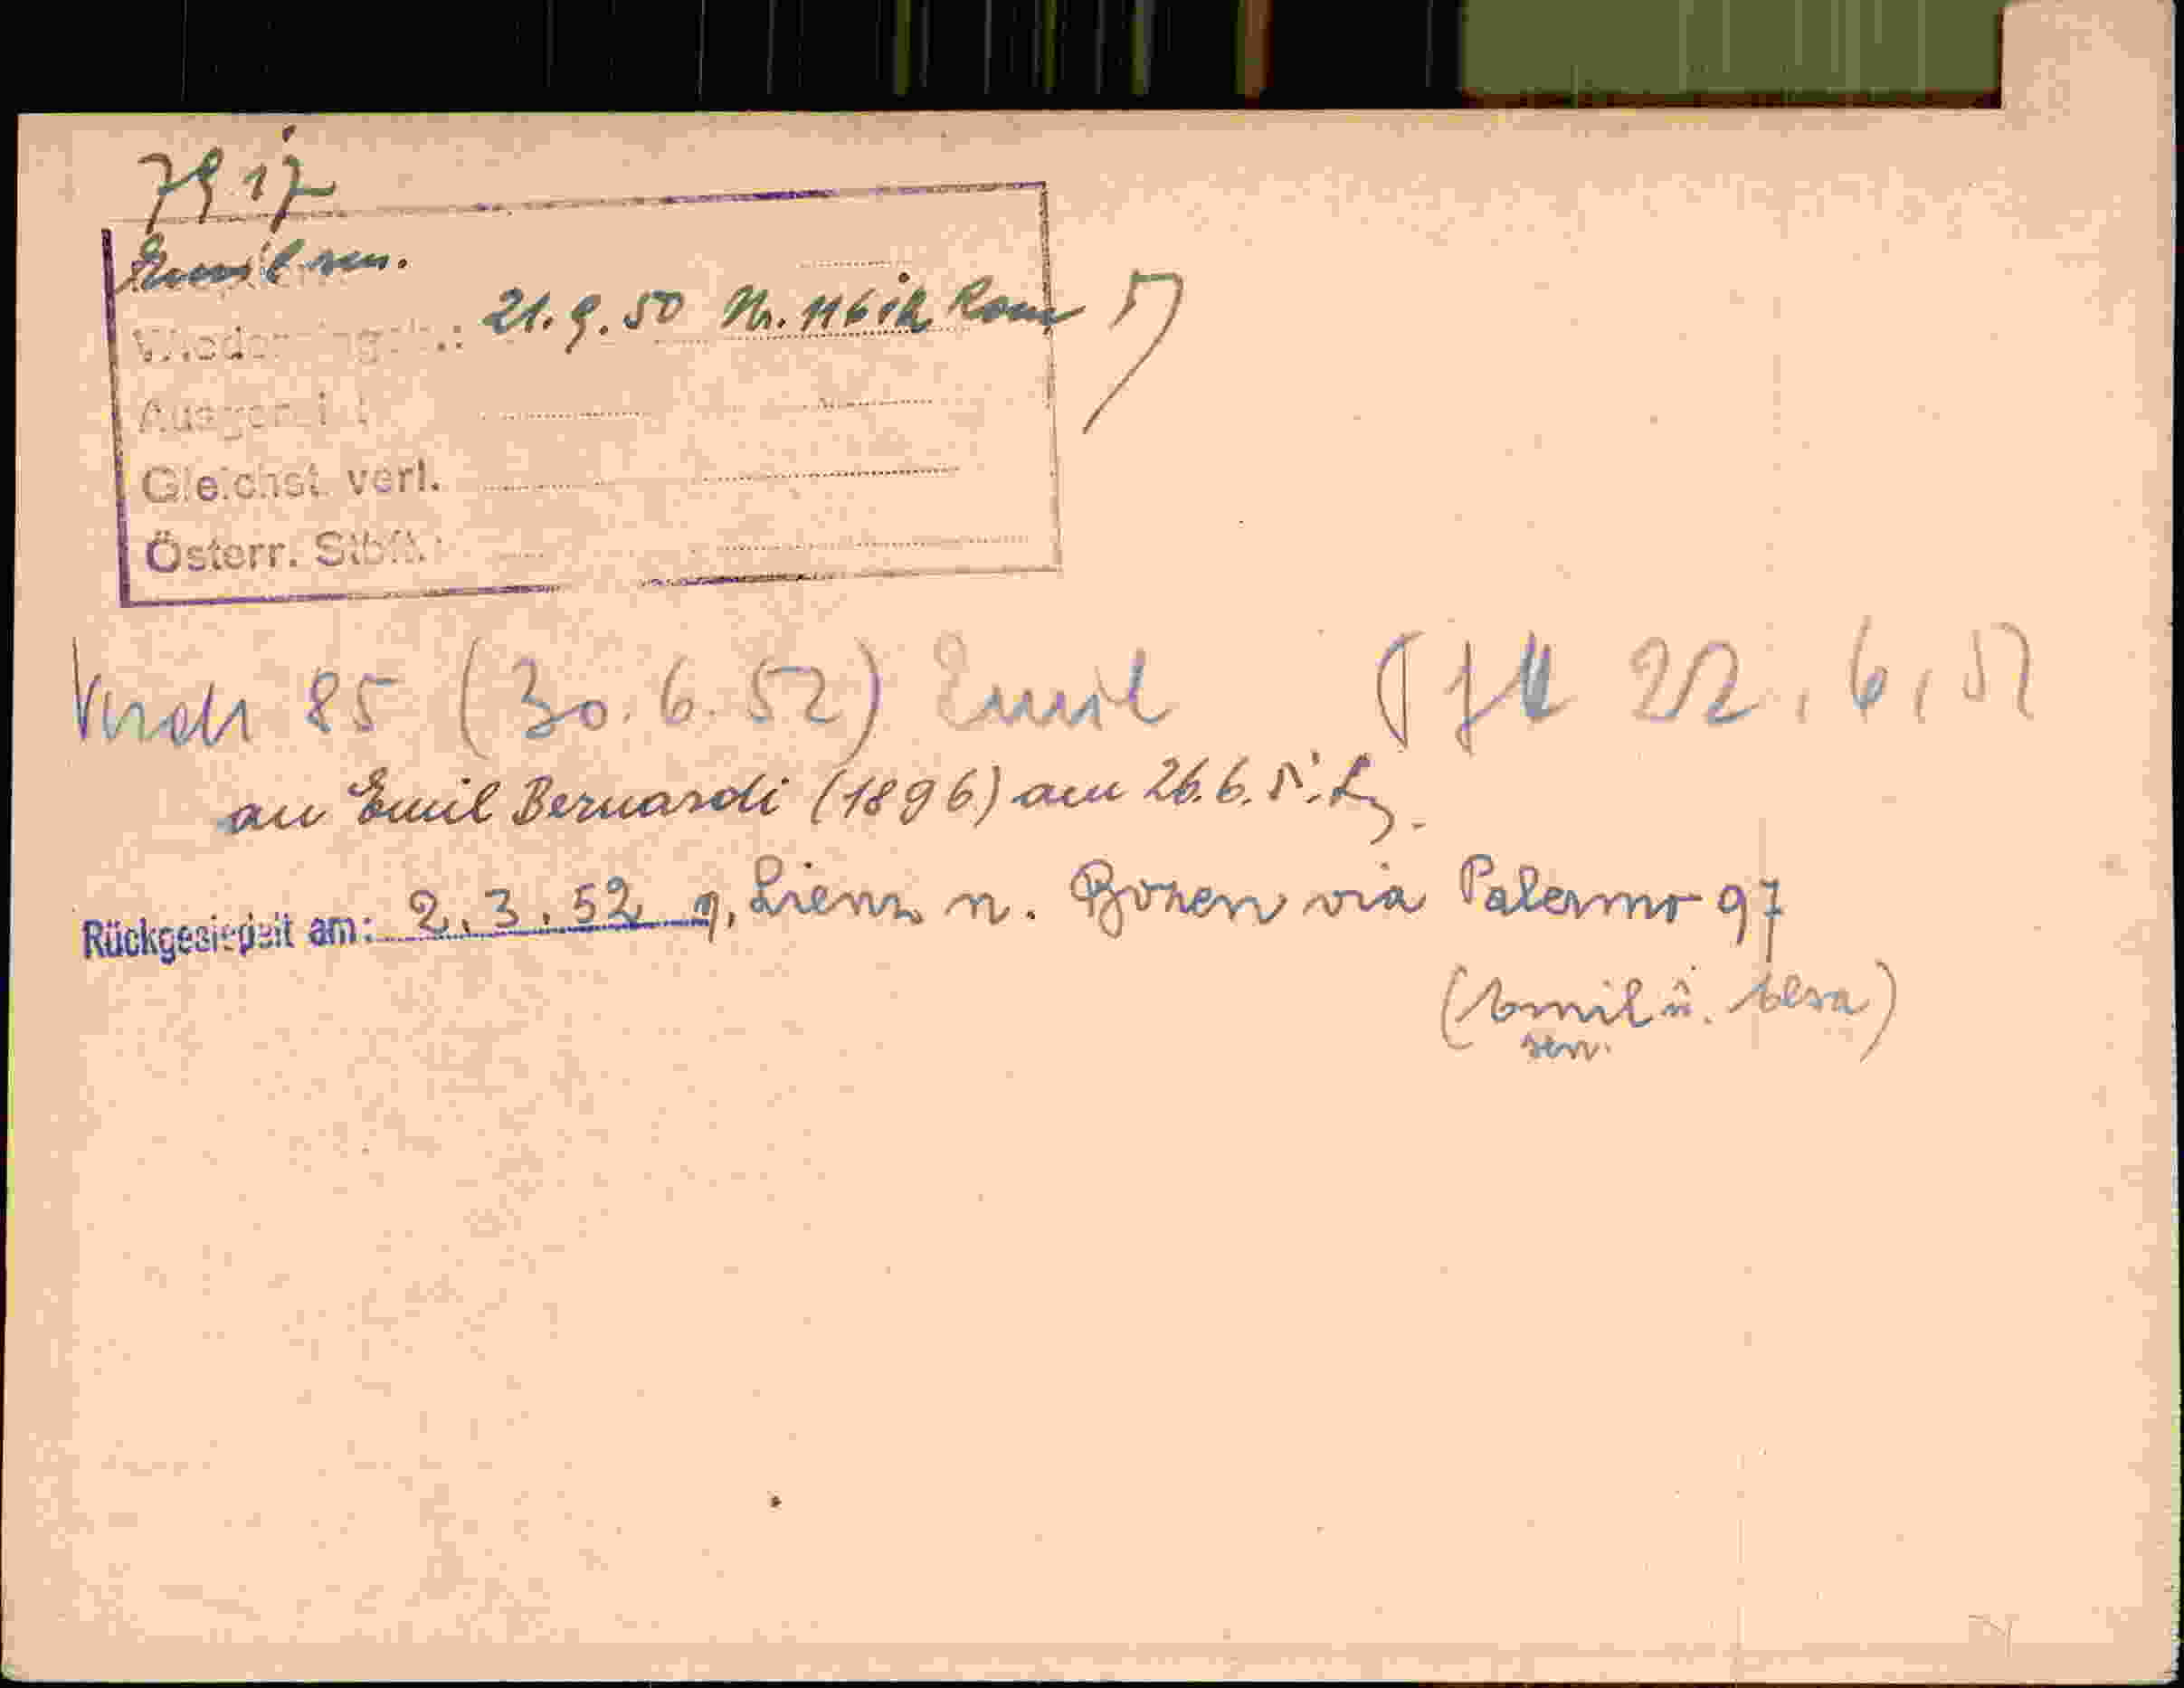 7917
Emil sen.
21.9.50 Nr. 116 Rom
Gleichst. verl.
Österr. Stbft.:
85 (30.6.52) Emil 22.6.5
an Emil Bernardi (1896) am 26.6.
Rückgesiedelt am: 2.3.52 v. Lienz n. Bozen via Palermo 97
(Emil u. Elsa)
sen.